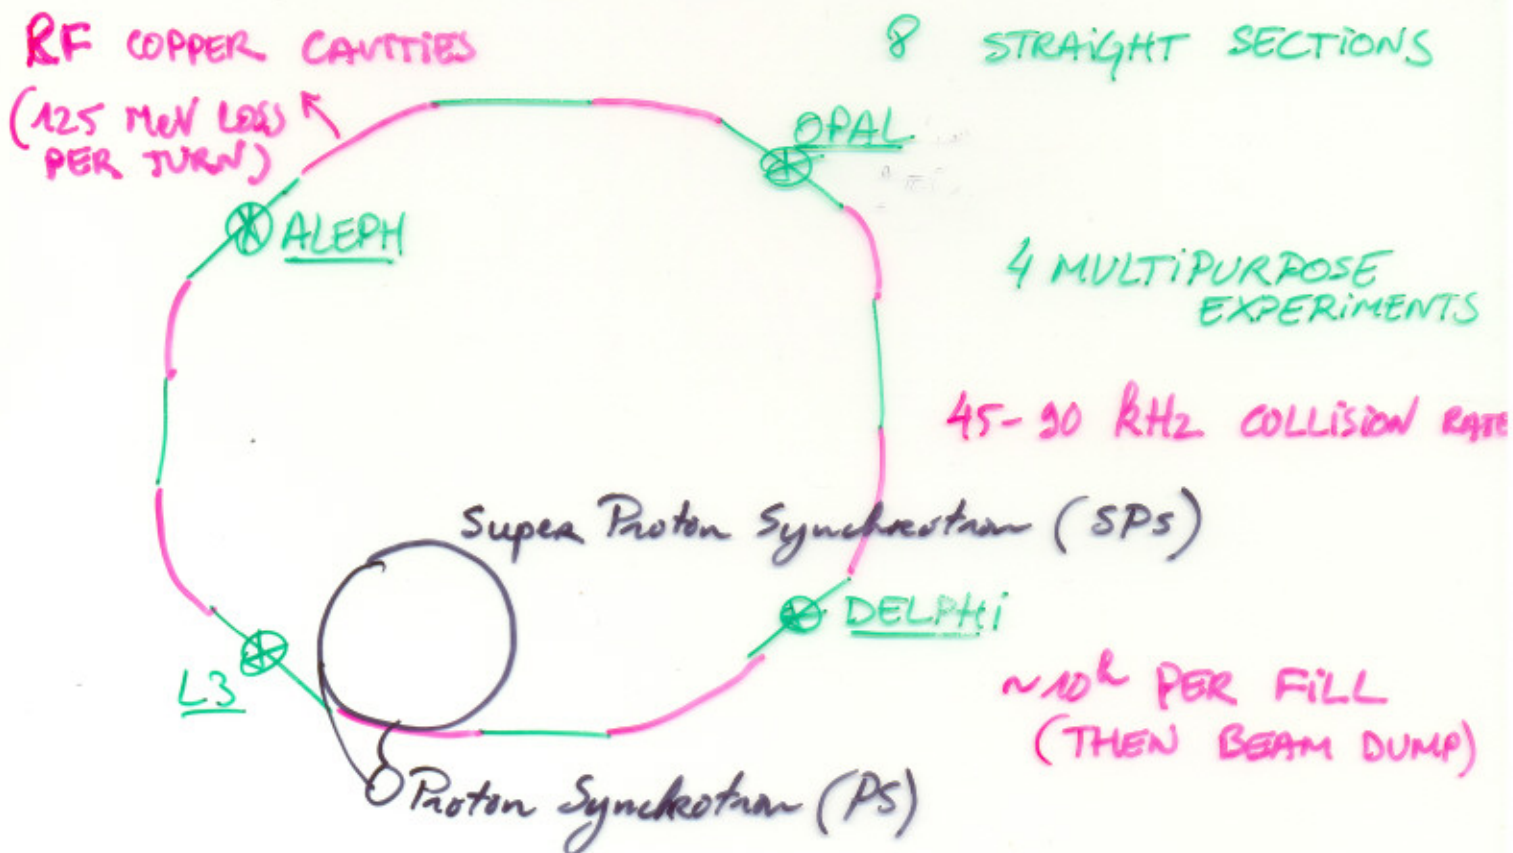 RF COPPER CAVITIES
(125 MeV LOSS
PER TURN)
8 STRAIGHT SECTIONS
OPAL
ALEPH
4 MULTIPURPOSE
EXPERIMENTS
45-90 kHz COLLISION RATE
Super Proton Synchrotron (SPS)
DELPHi
L3
~10h PER FiLL
(THEN BEAM DUMP)
Proton Synchrotron (PS)